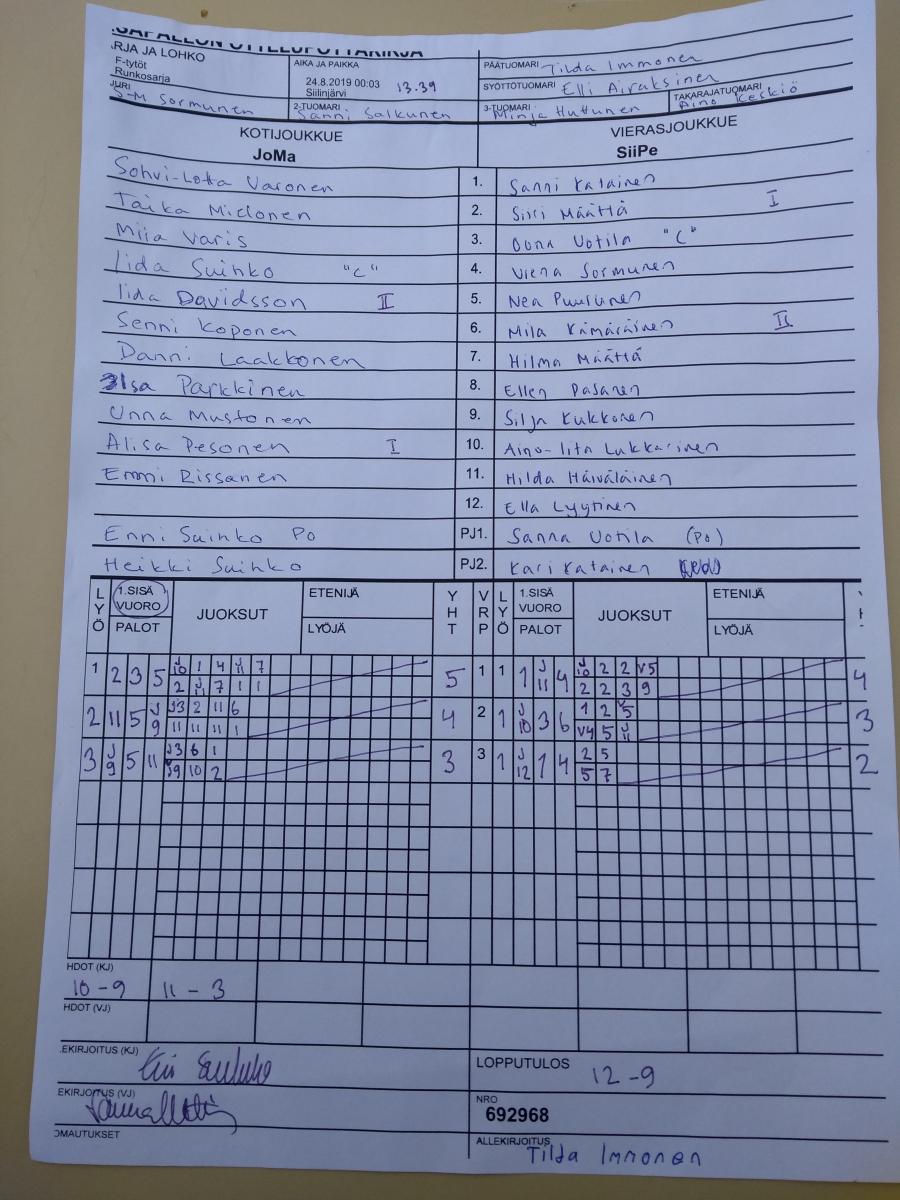 RJA JA LOHKO
F-tytöt
Runkosarja
AIKA JA PAIKKA
24.8.2019 00:03 13.39
Siilinjärvi
PÄÄTUOMARI Tilda Immonen
SYÖTTÖTUOMARI Elli Airaksinen
S-M Sormunen
2-TUOMARI Sanni Salkunen
3-TUOMARI Minja Huttunen
TAKARAJATUOMARI Aino Keskiö
KOTIJOUKKUE VIERASJOUKKUE
JoMa SiiPe
Sohvi-Lotta Varonen 1. Sanni Katainen
Taika Mielonen 2. Siiri Määttä I
Miia Varis 3. Oona Uotila "C"
Iida Suihko "C" 4. Viena Sormunen
Iida Davidsson II 5. Nea Puurunen
Senni Koponen 6. Mila Kämäräinen II
Danni Laakkonen 7. Hilma Määttä
Ilsa Parkkinen 8. Ellen Pasanen
Unna Mustonen 9. Silja Kukkonen
Alisa Pesonen I 10. Aino-Iita Lukkarinen
Emmi Rissanen 11. Hilda Häiväläinen
12. Ella Lyytinen
Enni Suihko PO PJ1. Sanna Uotila (PO)
Heikki Suihko PJ2. Kari Katainen
LYÖ 1.SISÄ VUORO PALOT JUOKSUT ETENIJÄ LYÖJÄ YHT VRP LYÖ 1.SISÄ VUORO PALOT JUOKSUT ETENIJÄ LYÖJÄ
1 2 3 5 J10 1 4 J11 7 5 1 1 1 J11 4 J10 2 2 V5 4
2 J11 7 1 1 2 2 3 9
2 11 5 J9 J3 2 11 6 4 2 1 J10 3 6 1 2 V5 3
11 11 11 1 V4 5 J11
3 J9 5 11 J3 6 1 3 3 1 J12 1 4 2 5 2
J9 10 2 5 7
HDOT (KJ)
10-9 11-3
HDOT (VJ)
.EKIRJOITUS (KJ)
LOPPUTULOS 12-9
EKIRJOITUS (VJ)
NRO
692968
OMAUTUKSET
ALLEKIRJOITUS Tilda Immonen